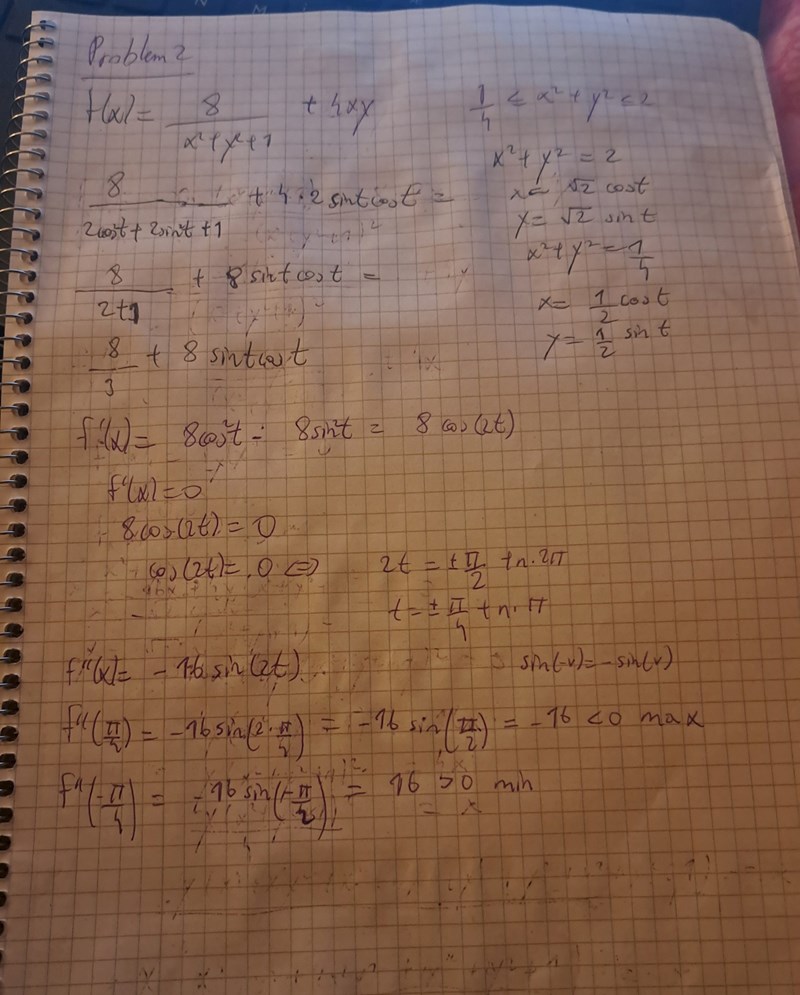 Problem 2
f(x) = 8/(x²+y²+1) + 4xy
1/4 ≤ x²+y² ≤ 2
x²+y² = 2
x = √2 cost
y = √2 sint
x²+y² = 1/4
x = 1/2 cost
y = 1/2 sint
8/(2cost+2sin²t+1) + 4·2sintcost =
8/(2+1) + 8sintcost =
8/3 + 8sintcost
f'(x) = 8cos²t - 8sin²t = 8cos(2t)
f'(x) = 0
8cos(2t) = 0
cos(2t) = 0 ⇔ 2t = ±π/2 + n·2π
t = ±π/4 + n·π
f''(x) = -16sin(2t) sin(-v) = -sin(v)
f''(π/4) = -16sin(2·π/4) = -16sin(π/2) = -16 < 0 max
f''(-π/4) = -16sin(-π/2) = 16 > 0 min